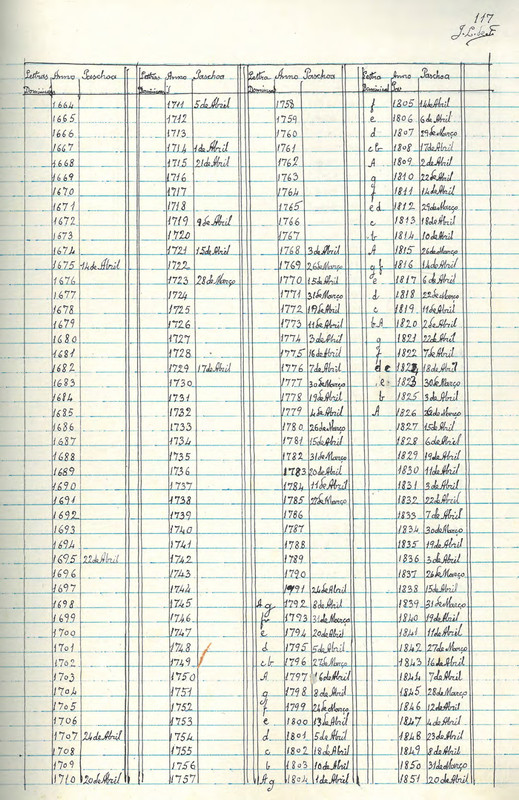 117
Letras Dominicaes Anno Paschoa
1664
1665
1666
1667
1668
1669
1670
1671
1672
1673
1674
1675 14 de Abril
1676
1677
1678
1679
1680
1681
1682
1683
1684
1685
1686
1687
1688
1689
1690
1691
1692
1693
1694
1695 22 de Abril
1696
1697
1698
1699
1700
1701
1702
1703
1704
1705
1706
1707 24 de Abril
1708
1709
1710 20 de Abril
Letras Anno Paschoa
1711 5 de Abril
1712
1713
1714 1 de Abril
1715 21 de Abril
1716
1717
1718
1719 9 de Abril
1720
1721 13 de Abril
1722
1723 28 de Março
1724
1725
1726
1727
1728
1729 17 de Abril
1730
1731
1732
1733
1734
1735
1736
1737
1738
1739
1740
1741
1742
1743
1744
1745
1746
1747
1748
1749
1750
1751
1752
1753
1754
1755
1756
1757
Letra Dominical Anno Paschoa
1758
1759
1760
1761
1762
1763
1764
1765
1766
1767
1768 3 de Abril
1769 26 de Março
1770 15 de Abril
1771 31 de Março
1772 19 de Abril
1773 11 de Abril
1774 3 de Abril
1775 16 de Abril
1776 7 de Abril
1777 30 de Março
1778 19 de Abril
1779 4 de Abril
1780 26 de Março
1781 15 de Abril
1782 31 de Março
1783 20 de Abril
1784 11 de Abril
1785 27 de Março
1786
1787
1788
1789
1790
1791 24 de Abril
A g 1792 8 de Abril
f 1793 31 de Março
e 1794 20 de Abril
d 1795 5 de Abril
cb 1796 27 de Março
A 1797 16 de Abril
g 1798 8 de Abril
f 1799 24 de Março
e 1800 13 de Abril
d 1801 5 de Abril
c 1802 18 de Abril
b 1803 10 de Abril
A g 1804 1 de Abril
Letra Dominical Anno Paschoa
f 1805 14 de Abril
e 1806 6 de Abril
d 1807 29 de Março
cb 1808 17 de Abril
A 1809 2 de Abril
g 1810 22 de Abril
f 1811 14 de Abril
ed 1812 29 de Março
c 1813 18 de Abril
b 1814 10 de Abril
A 1815 26 de Março
gf 1816 14 de Abril
e 1817 6 de Abril
d 1818 22 de Março
c 1819 11 de Abril
bA 1820 2 de Abril
g 1821 22 de Abril
f 1822 7 de Abril
de 18 de Abril
e 1823 30 de Março
b 1825 3 de Abril
A 1826 26 de Março
1827 15 de Abril
1828 6 de Abril
1829 19 de Abril
1830 11 de Abril
1831 3 de Abril
1832 22 de Abril
1833 7 de Abril
1834 30 de Março
1835 19 de Abril
1836 3 de Abril
1837 26 de Março
1838 15 de Abril
1839 31 de Março
1840 19 de Abril
1841 11 de Abril
1842 27 de Março
1843 16 de Abril
1844 7 de Abril
1845 28 de Março
1846 12 de Abril
1847 4 de Abril
1848 23 de Abril
1849 8 de Abril
1850 31 de Março
1851 20 de Abril